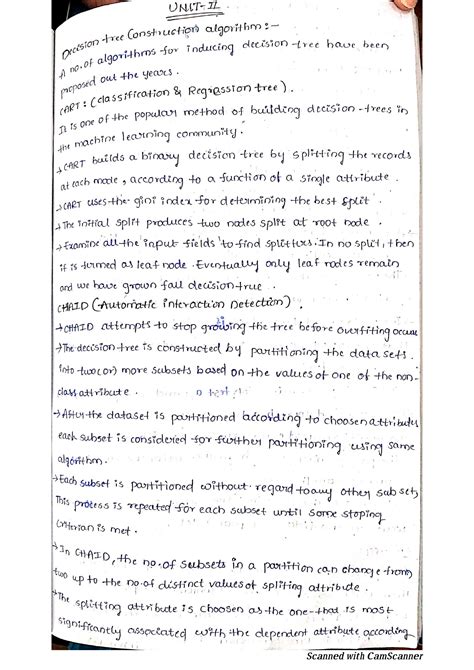 UNIT-II
Decision tree Construction algorithm:-
A no.of algorithms for inducing decision-tree have been
proposed out the years.
CART: (classification & Regression tree).
It is one of the popular method of building decision-trees in
the machine learning community.
→CART builds a binary decision-tree by splitting the records
at each node, according to a function of a single attribute.
→CART uses-the gini index for determining the best split.
→The initial split produces two nodes split at root node.
→Examine all-the input fields to find splitters. In no split, then
it is termed as leaf node. Eventually only leaf nodes remain
and we have grown full decision true.
CHAID (Automatic interaction Detection).
→CHAID attempts to stop growing the tree before overfiting occurs
→The decision-tree is constructed by partitioning the data sets.
into two(or) more subsets based on the values of one of the non-
class attribute.
→After the dataset is partitioned according to choosen attributes
each subset is considered for further partitioning using same
algorithm.
→Each subset is partitioned without regard to any other sub sets
This process is repeated for each subset until some stoping
criterian is met.
→In CHAID, the no.of subsets in a partition can change from
two up to the no.of distinct values of spliting attribute.
→The splitting attribute is choosen as the one that is most
significantly associated with the dependent attribute according
Scanned with CamScanner